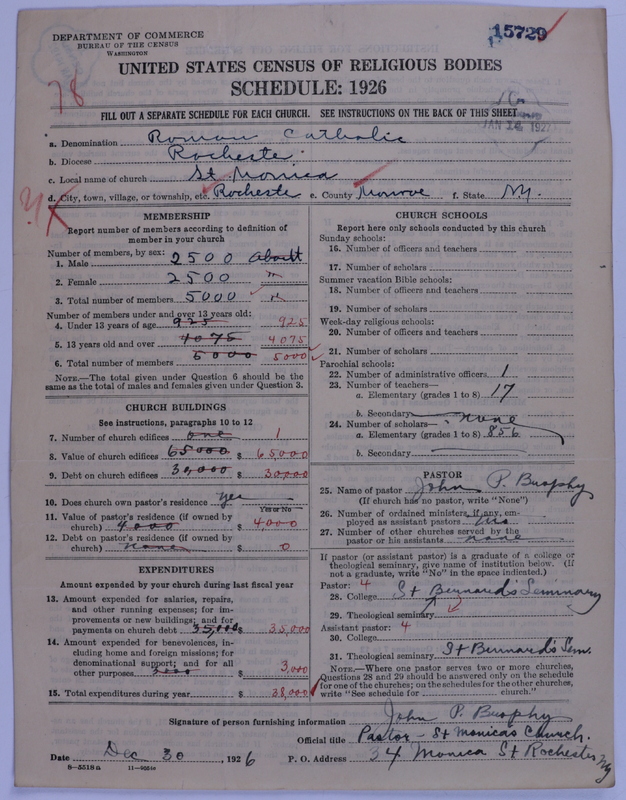 15729
DEPARTMENT OF COMMERCE
BUREAU OF THE CENSUS
WASHINGTON
UNITED STATES CENSUS OF RELIGIOUS BODIES
SCHEDULE: 1926
78
FILL OUT A SEPARATE SCHEDULE FOR EACH CHURCH. SEE INSTRUCTIONS ON THE BACK OF THIS SHEET
JAN 1927
a. Denomination Roman Catholic
b. Diocese Rochester
c. Local name of church St Monica
d. City, town, village, or township, etc. Rochester e. County Monroe f. State N.Y.
MEMBERSHIP
Report number of members according to definition of
member in your church
Number of members, by sex:
1. Male 2500 about
2. Female 2500 "
3. Total number of members 5000 "
Number of members under and over 13 years old:
4. Under 13 years of age 925 925
5. 13 years old and over 4075 4075
6. Total number of members 5000 5000
NOTE.—The total given under Question 6 should be the
same as the total of males and females given under Question 3.
CHURCH BUILDINGS
See instructions, paragraphs 10 to 12
7. Number of church edifices one 1
8. Value of church edifices 65000 $ 65000
9. Debt on church edifices 30,000 $ 30,000
10. Does church own pastor's residence yes
Yes or No
11. Value of pastor's residence (if owned by
church) 4000 $ 4000
12. Debt on pastor's residence (if owned by
church) none $ 0
EXPENDITURES
Amount expended by your church during last fiscal year
13. Amount expended for salaries, repairs,
and other running expenses; for im-
provements or new buildings; and for
payments on church debt 35,000 $ 35,000
14. Amount expended for benevolences, in-
cluding home and foreign missions; for
denominational support; and for all
other purposes 3000 $ 3,000
15. Total expenditures during year $ 38,000
CHURCH SCHOOLS
Report here only schools conducted by this church
Sunday schools:
16. Number of officers and teachers
17. Number of scholars
Summer vacation Bible schools:
18. Number of officers and teachers
19. Number of scholars
Week-day religious schools:
20. Number of officers and teachers
21. Number of scholars
Parochial schools:
22. Number of administrative officers 1
23. Number of teachers—
a. Elementary (grades 1 to 8) 17
b. Secondary none
24. Number of scholars—
a. Elementary (grades 1 to 8) 856
b. Secondary
PASTOR
25. Name of pastor John P. Brophy
(If church has no pastor, write "None")
26. Number of ordained ministers, if any, em-
ployed as assistant pastors
27. Number of other churches served by the
pastor or his assistants none
If pastor (or assistant pastor) is a graduate of a college or
theological seminary, give name of institution below. (If
not a graduate, write "No" in the space indicated.)
Pastor: 4
28. College St Bernard's Seminary
29. Theological seminary
Assistant pastor: 4
30. College
31. Theological seminary St Bernard's Sem.
NOTE.—Where one pastor serves two or more churches,
Questions 28 and 29 should be answered only on the schedule
for one of the churches; on the schedules for the other churches,
write "See schedule for church."
Signature of person furnishing information John P. Brophy
Official title Pastor - St Monica's Church.
Date Dec 30, 1926 P. O. Address 34 Monica St Rochester NY
8-5518a